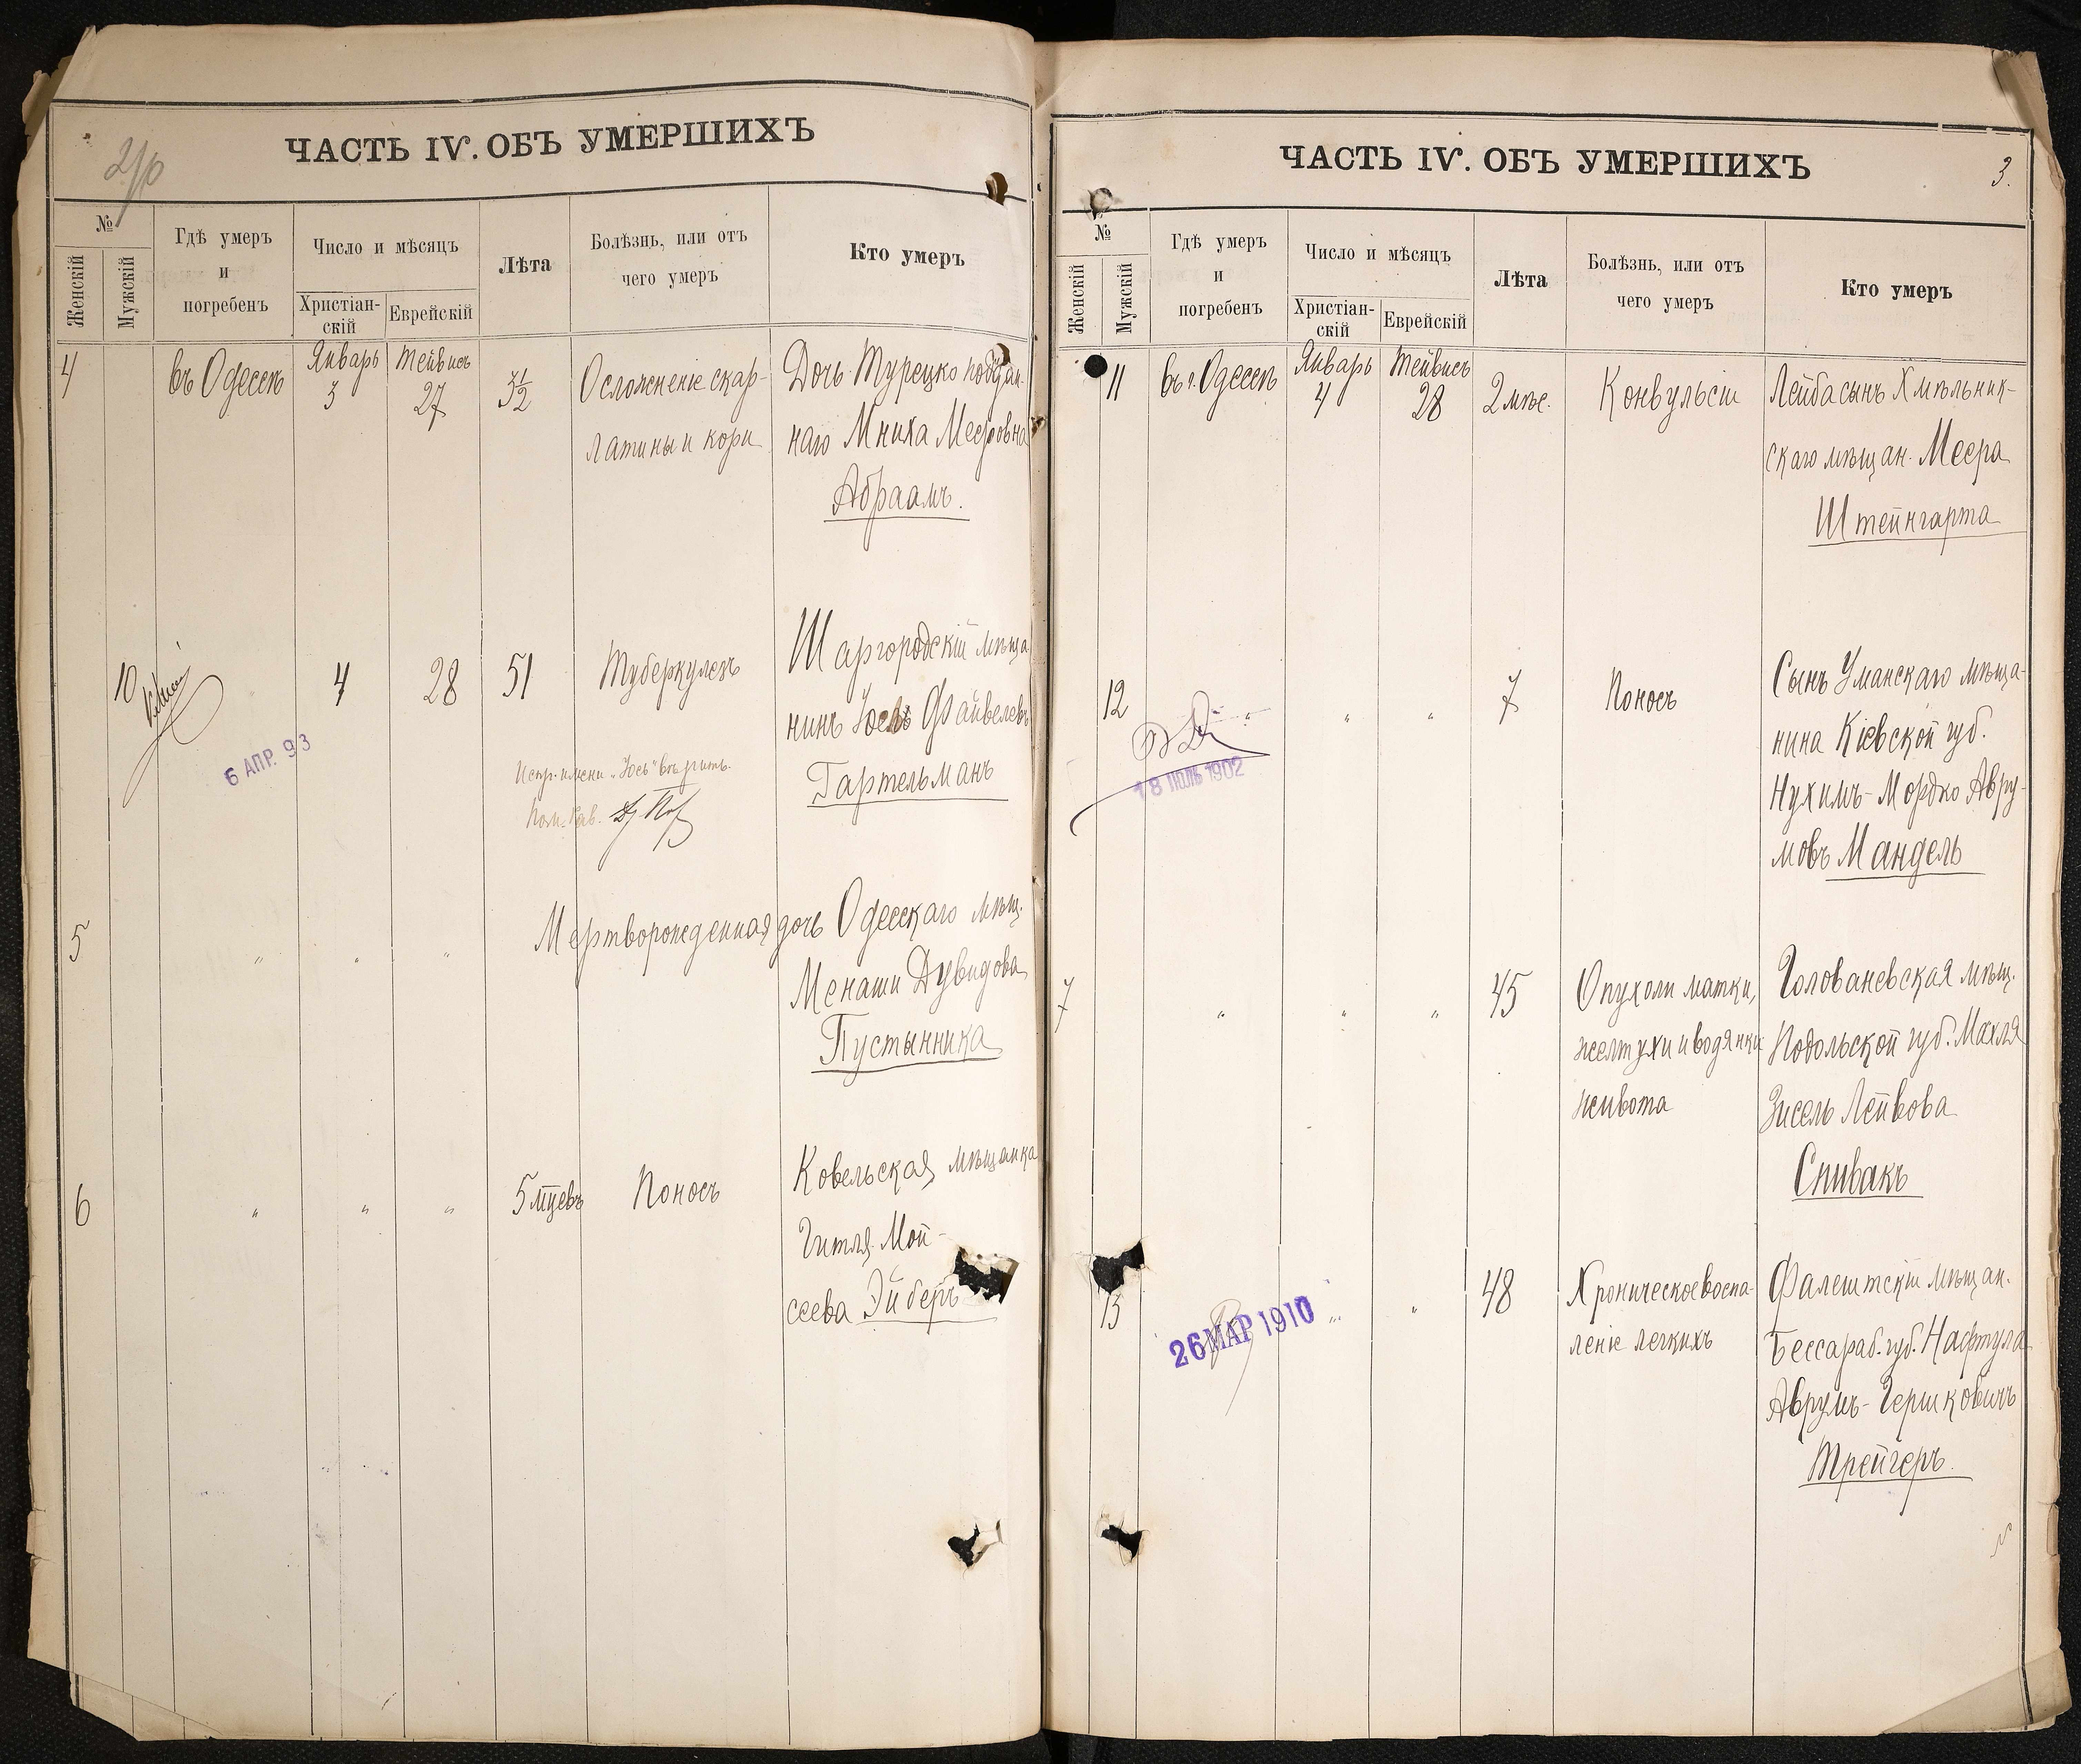 ЧАСТЬ IV. ОБЪ УМЕРШИХЪ
№
Женскій
Мужскій
Гдѣ умеръ
и
погребенъ
Число и мѣсяцъ
Христіан-
скій
Еврейскій
Лѣта
Болѣзнь, или отъ
чего умеръ
Кто умеръ
4 въ Одессѣ Январь 3 Тейвисъ 27 3½ Осложненіе скар- Дочь Турецко поддан-
латины и кори наго Мниха Мееровна
Абраамъ.
10 " 4 28 51 Туберкулезъ Шаргородскій мѣща
нинъ Юсь Файвелевъ
Гартельманъ
6 АПР. 93
Испр. имени "Юсь" вѣрить.
5 " " " Мертворожденная дочь Одесскаго мѣщ.
Менаши Дувидова
Пустынника
6 " " " 5 мцевъ Поносъ Ковельская мѣщанка
Гитля Мой-
сеева Эйберъ
ЧАСТЬ IV. ОБЪ УМЕРШИХЪ
3.
№
Женскій
Мужскій
Гдѣ умеръ
и
погребенъ
Число и мѣсяцъ
Христіан-
скій
Еврейскій
Лѣта
Болѣзнь, или отъ
чего умеръ
Кто умеръ
11 въ г. Одессѣ Январь 4 Тейвисъ 28 2 мѣс. Конвульсіи Лейба сынъ Хмѣльник-
скаго мѣщан. Меера
Штейнгарта
12 " " " 7 Поносъ Сынъ Уманскаго мѣща-
нина Кіевской губ.
Нухимъ-Мордко Авру-
мовъ Мандель
18 ІЮЛЬ 1902
7 " " " 45 Опухоли матки, Голованевская мѣщ.
желтухи и водянки Подольской губ. Махля
живота Зисель Лейвова
Спивакъ
13 " " 48 Хроническое воспа- Фалештскій мѣщан.
леніе легкихъ Бессараб. губ. Нафтула
Аврумъ-Гершковичъ
Трейгеръ.
26 МАР 1910